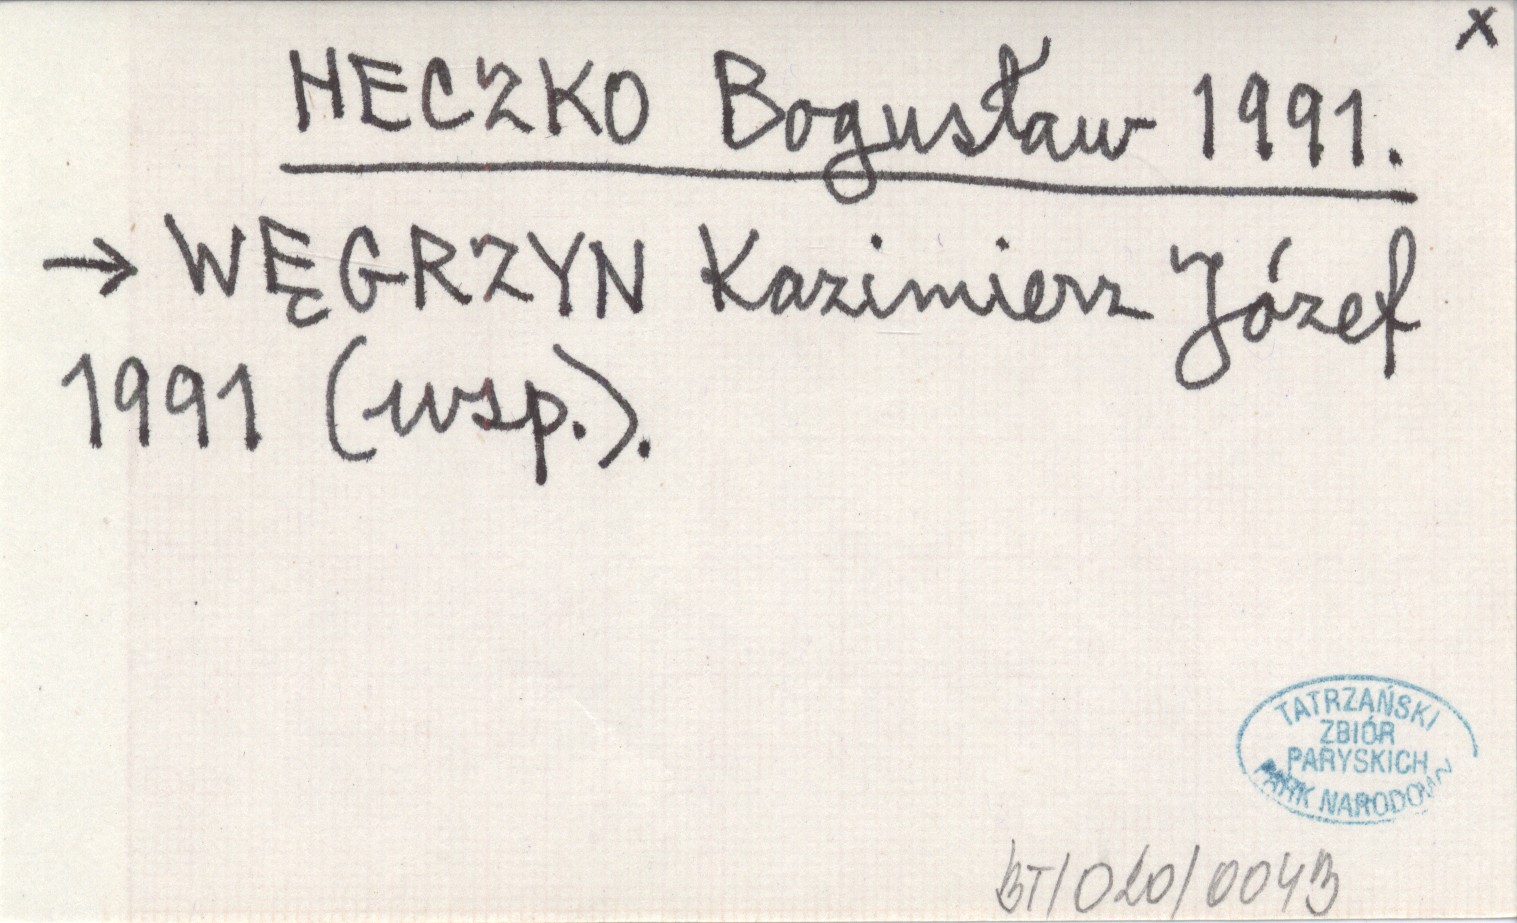 x
HECZKO Bogusław 1991.
→ WĘGRZYN Kazimierz Józef
1991 (wsp.).
TATRZAŃSKI
ZBIÓR
PARYSKICH
PARK NARODOWY
BT/020/0043